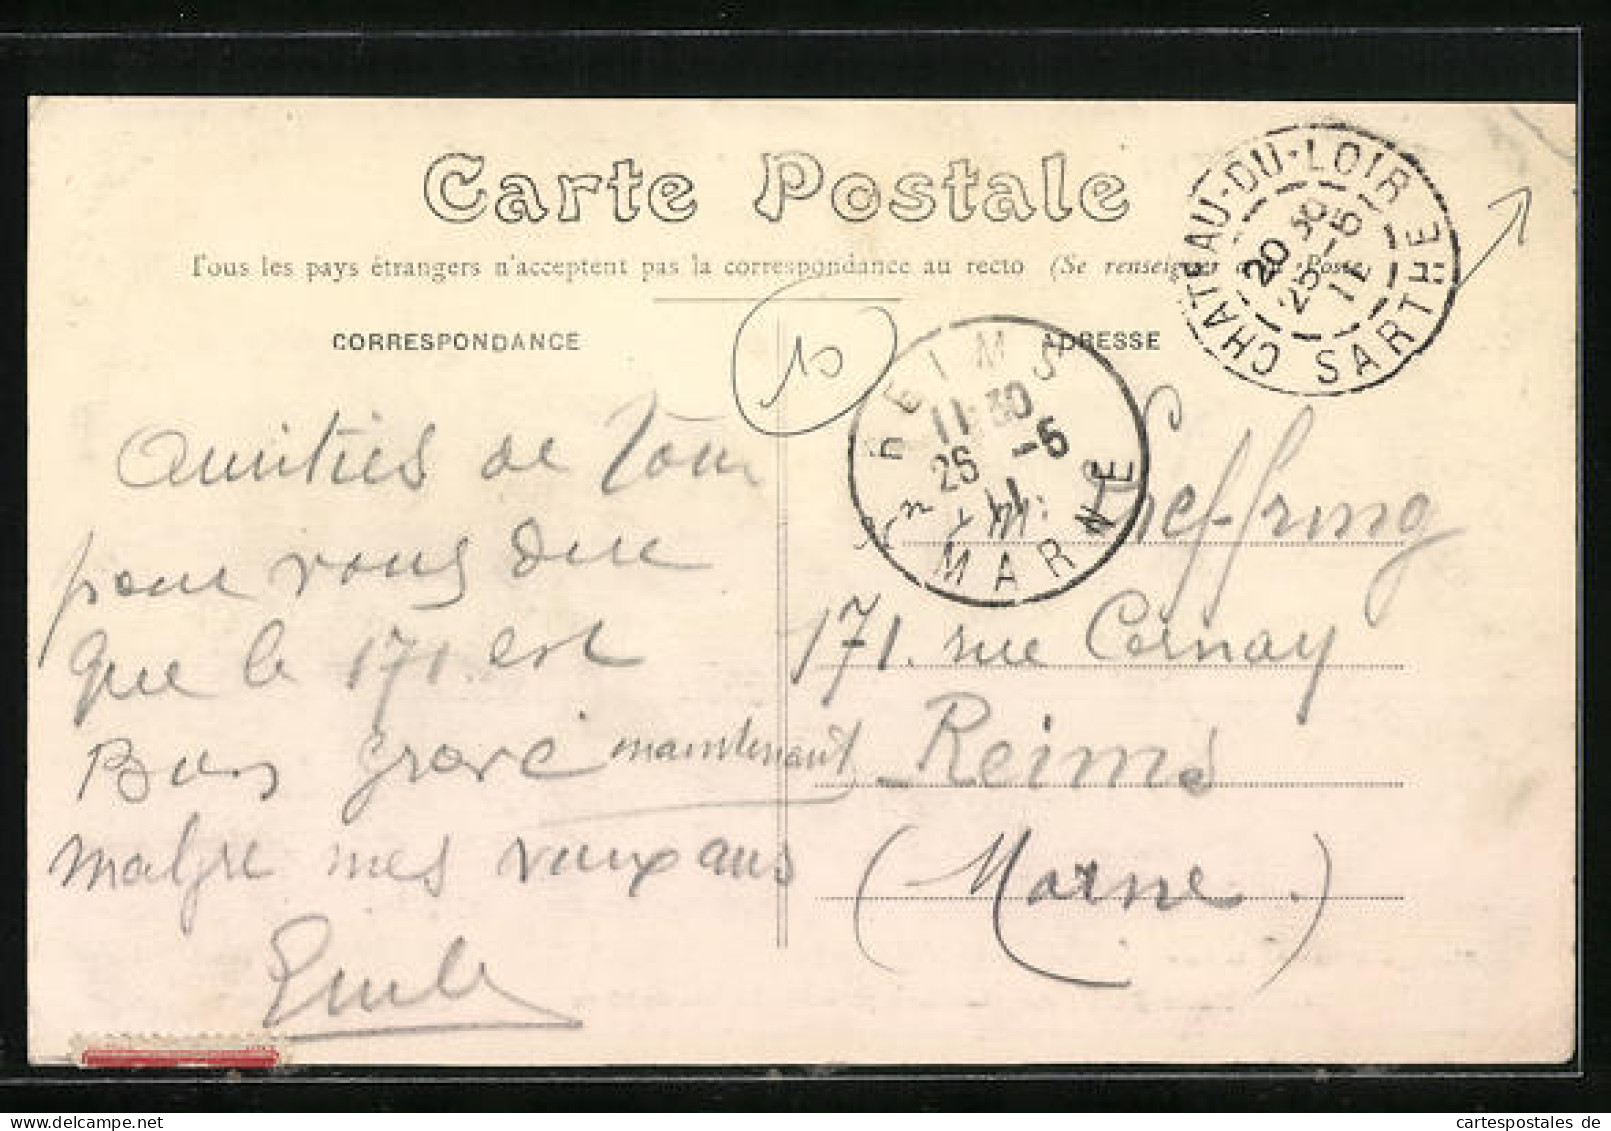 Carte Postale
Tous les pays étrangers n'acceptent pas la correspondance au recto (Se renseigner à la Poste
CORRESPONDANCE
ADRESSE
CHATEAU-DU-LOIR
SARTHE
20 30
25 -5
11
10
REIMS
11 30
26 -5
11
MARNE
Amitiés de Tous
pour vous dire
que le 171. est
Bien gravé maintenant
malgre mes vieux ans
Emile
Seffring
171. rue Cernay
Reims
(Marne.)
cartespostales de